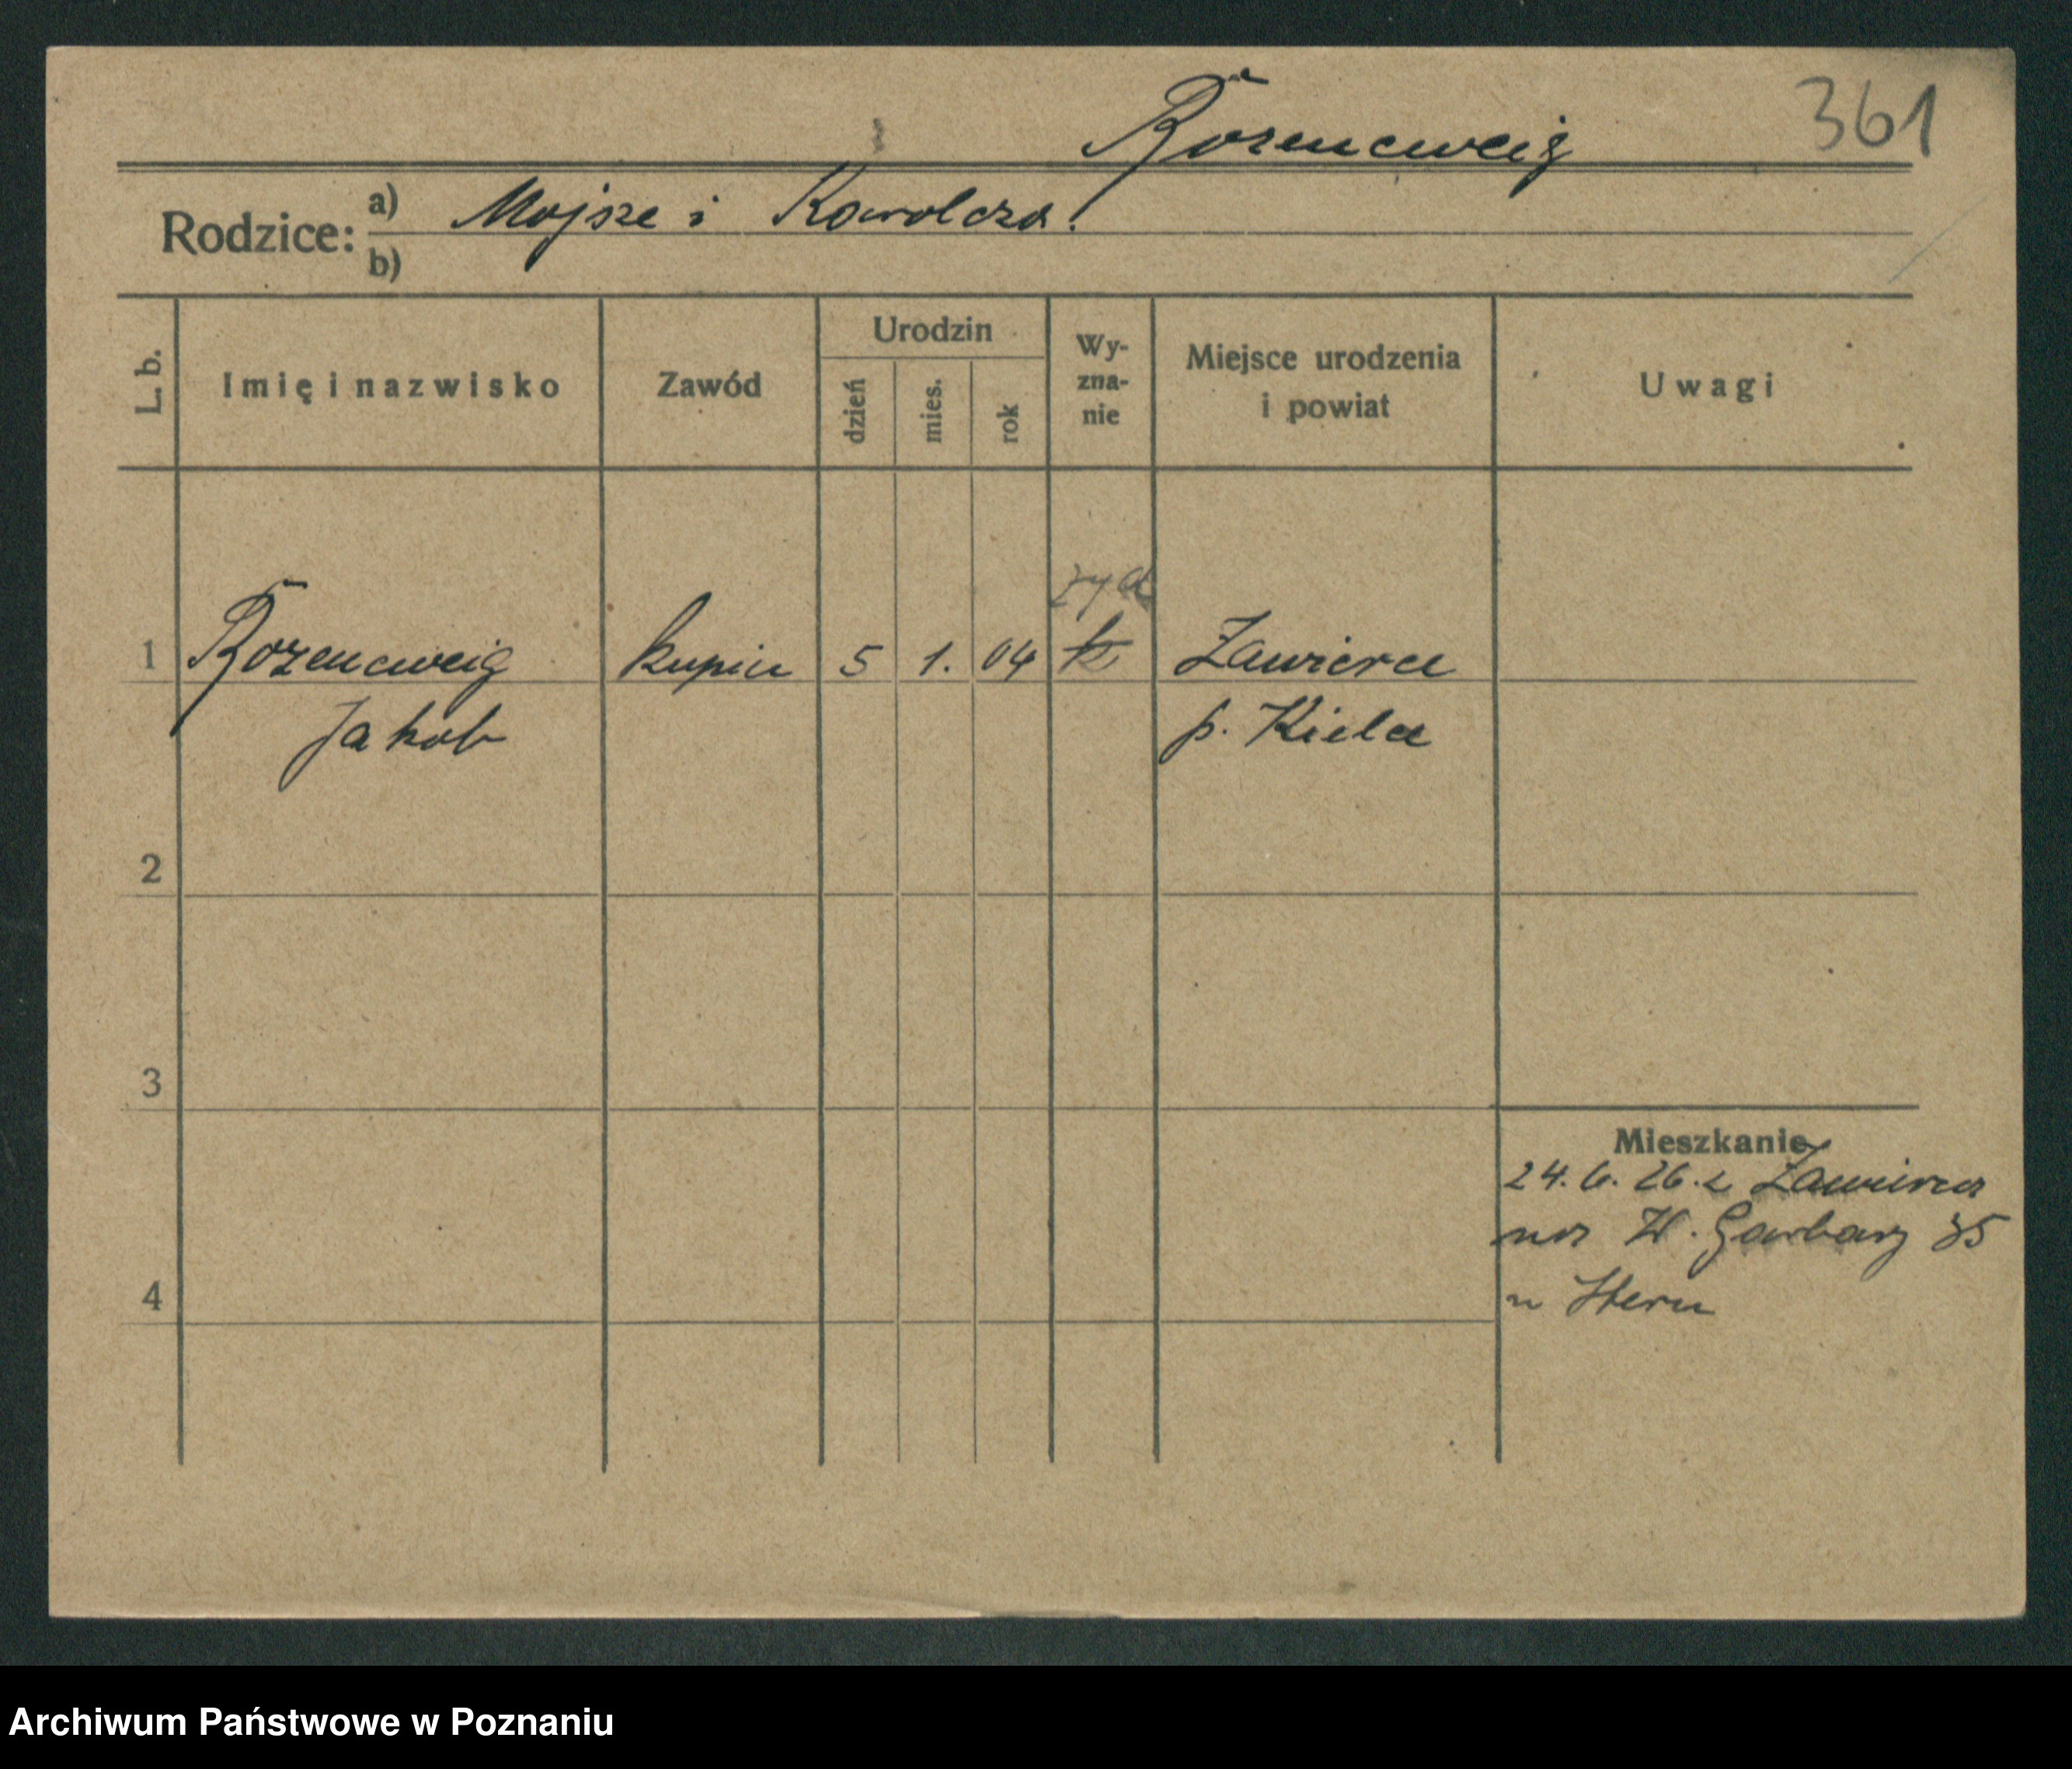 Rozencweig 361
Rodzice: a) Mojsze i
b)
L. b. Imię i nazwisko Zawód Urodzin dzień mies. rok Wy-zna-nie Miejsce urodzenia i powiat Uwagi
żyd
1 Rozencweig kupiec 5 1. 04 k Zawierce
Jakob p. Kielce
2
3
Mieszkanie
24. 6. 26. z Zawiercia
na W. Garbary 35
4 u Stern
Archiwum Państwowe w Poznaniu